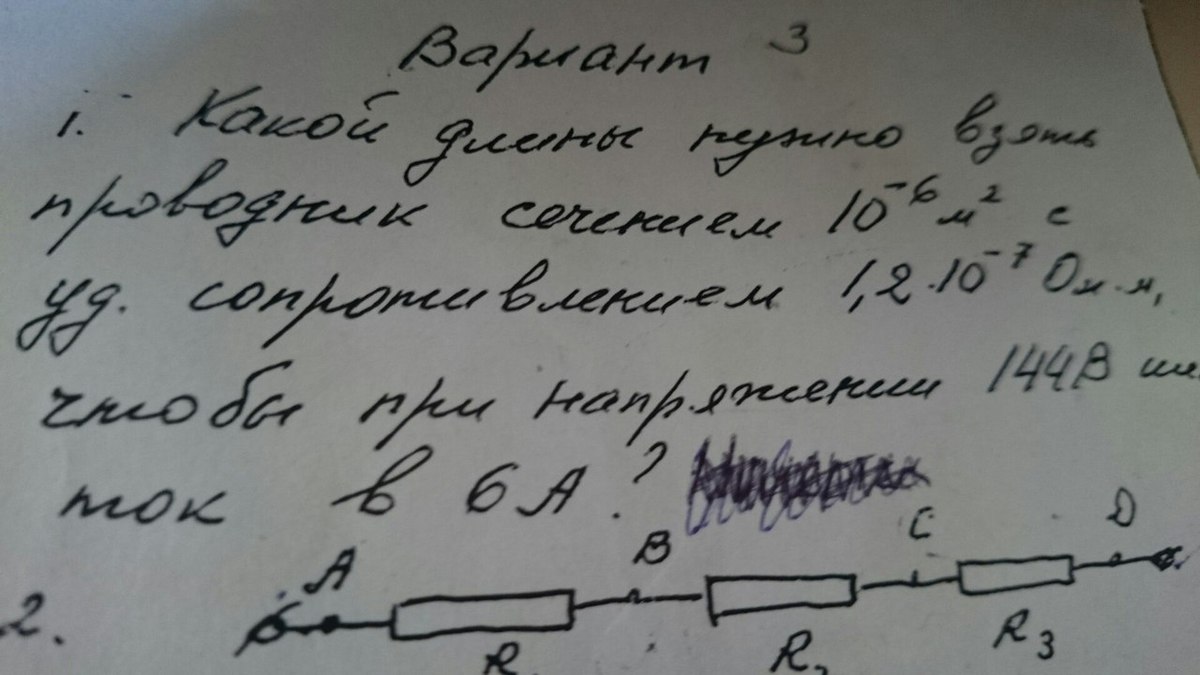 Вариант 3
1. Какой длины нужно взять
проводник сечением 10⁻⁶ м² с
уд. сопротивлением 1,2·10⁻⁷ Ом·м,
чтобы при напряжении 144В
ток в 6А?
A B C D
2.
R R R₃